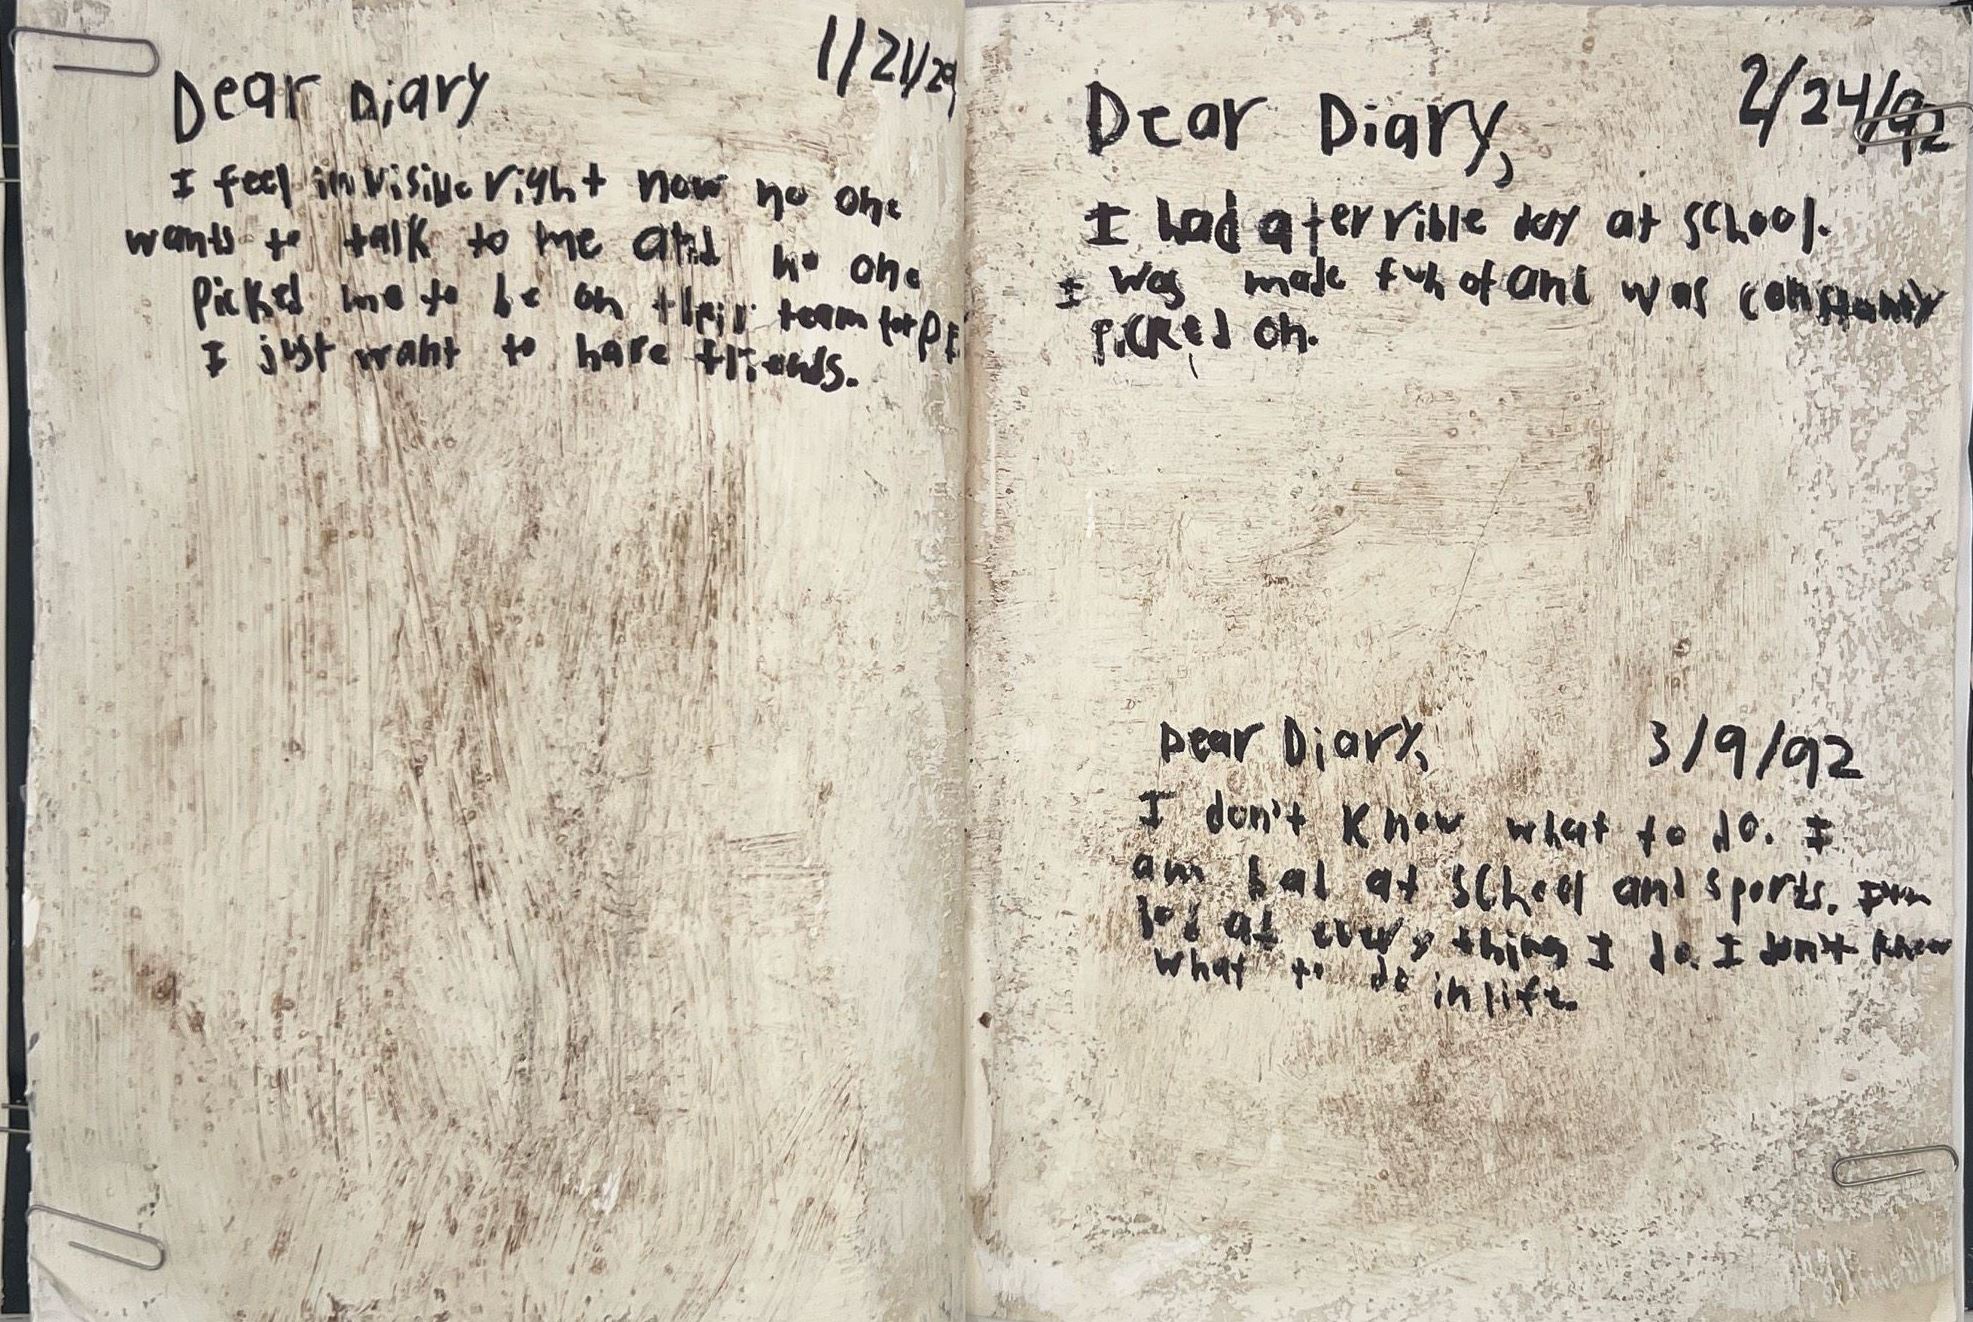 Dear Diary 1/21/29
I feel invisible right now no one
wants to talk to me and no one
picked me to be on their team for PE
I just want to have friends.
Dear Diary, 2/24/92
I had a terrible day at school.
I was made fun of and was constantly
picked on.
Dear Diary, 3/9/92
I don't know what to do. I
am bad at school and sports. I'm
bad at every thing I do. I don't know
what to do in life.